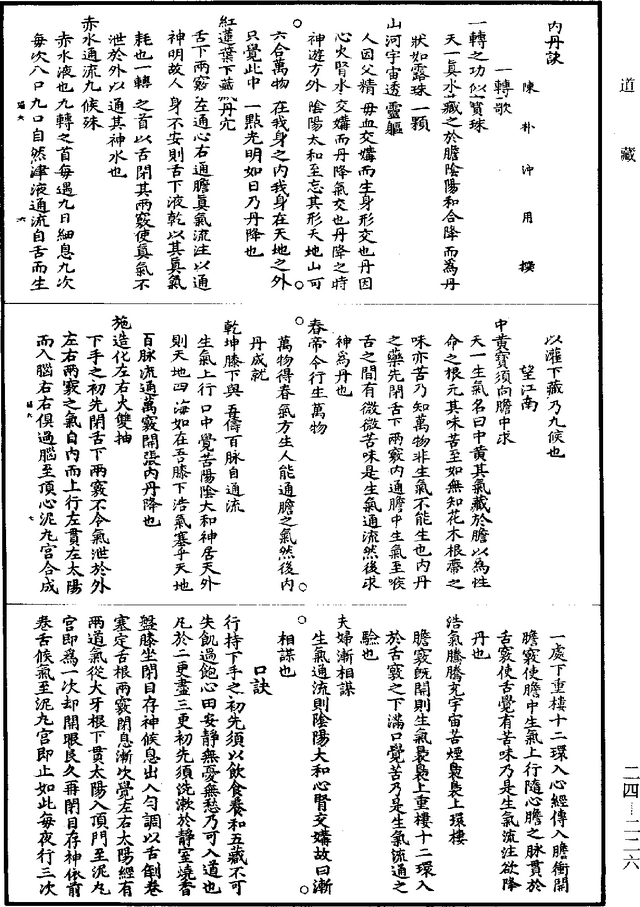 道藏
內丹訣
陳朴沖用撰
一轉歌
一轉之功似寶珠
天一真水藏之於膽陰陽和合降而為丹
狀如露珠一顆
山河宇宙透靈軀
人因父精母血交媾而生身形交也丹因
心火腎水交媾而丹降氣交也丹降之時
神遊方外陰陽太和至忘其形天地山可
六合萬物在我身之內我身在天地之外
只覺此中一點光明如日乃丹降也
紅蓮葉下藏丹穴
舌下兩竅左通心右通膽真氣流注以通
神明故人身不安則舌下液乾以其真氣
耗也一轉之首以舌閉其兩竅使真氣不
泄於外以通其神水也
赤水通流九候殊
赤水液也九轉之首每遇九日細息九次
每次八口九口自然津液通流自舌而生
以灌下藏乃九候也
望江南
中黃寶須向膽中求
天一生氣名曰中黃其氣藏於膽以為性
命之根元其味苦至如無知花木根蔕之
味亦苦乃知萬物非生氣不能生也內丹
之藥先閉舌下兩竅內通膽中生氣至喉
舌之間有微微苦味是生氣通流然後求
神為丹也
春帝令行生萬物
萬物得春氣方生人能通膽之氣然後內
丹成就
乾坤膝下與吾儔百脉自通流
生氣上行口中覺苦陽陰大和神居天外
則天地四海如在吾膝下浩氣塞乎天地
百脉流通萬竅開張內丹降也
施造化左右火雙抽
下手之初先閉舌下兩竅不令氣泄於外
左右兩竅之氣自內而上行左貫左太陽
而入腦右右俱過腦至頂心泥丸宮合成
一處下重樓十二環入心經傳入膽衝開
膽竅使膽中生氣上行隨心膽之脉貫於
舌竅使舌覺有苦味乃是生氣流注欲降
丹也
浩氣騰騰充宇宙苦煙裊裊上環樓
膽竅既開則生氣裊裊上重樓十二環入
於舌竅之下滿口覺苦乃是生氣流通之
驗也
夫婦漸相謀
生氣通流則陰陽大和心腎交媾故曰漸
相謀也
口訣
行持下手之初先須以飲食養和五藏不可
失飢過飽心田安靜無憂無愁乃可入道也
凡於二更盡三更初先須洗漱於靜室燒香
盤膝坐閉目存神候息出入勻調以舌倒卷
塞定舌根兩竅閉息漸次覺左右太陽經有
兩道氣從大牙根下貫太陽入頂門至泥丸
宮即為一次却開眼良久再閉目存神依前
卷舌候氣至泥丸宮即止如此每夜行三次
二四—二二六